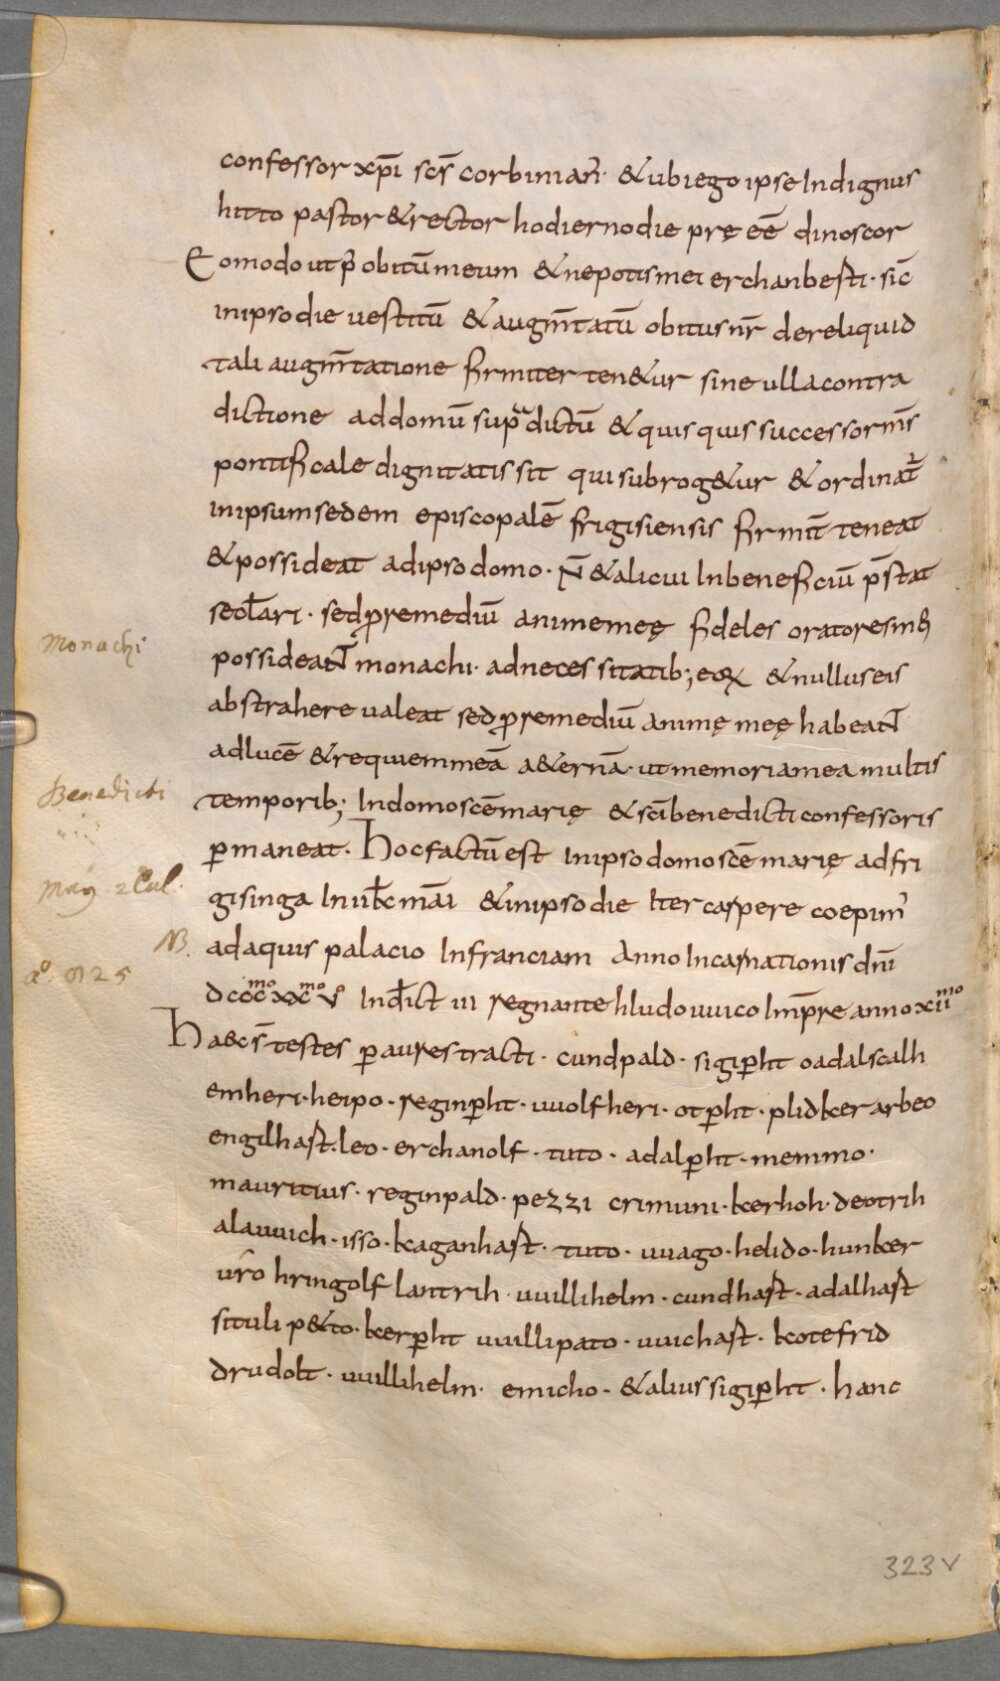 confessor xp̄i sc̄s corbinian̄· & ubi ego ipse Indignus
hitto pastor & rector hodierno die pr̨e eē dinoscor
Eo modo ut p̄ obitū meum & nepotis mei erchanbesti· sic̄
in ipso die uestitū & augm̄tatū obitus nr̄ dereliquid
tali augm̄tatione firmiter ten&ur sine ulla contra
dictione ad domū sup̄a dictū & quis quis successor m̄s
pontificale dignitatis sit qui subrog&ur & ordinat̄
in ipsum sedem episcopalē frigisiensis firmit̄ teneat
& possideat ad ipso domo· N̄ & alicui In beneficiū p̄stat
secl̄ari· sed ꝓ remediū anime meę fideles oratores mꝫ
possideant monachi· ad necessitatib; eoꝝ & nullus eis
abstrahere ualeat sed ꝓ remediū animę meę habeant
ad lucē & requiem meā a&ernā· ut memoria mea multis
temporib; In domo scē marię & sc̄i benedicti confessoris
ꝑmaneat· Hoc factū est in ipso domo scē marię ad fri
gisinga In uii kł mai & in ipso die Iter carpere coepim̄
ad aquis palacio In franciam Anno Incarnationis dn̄i
dccc^mo xx^mo v^o Indict̄ iii regnante hludouuico Imp̄re anno xii^mo
Haec s̄ testes ꝑ aures tracti· cundpald· sigiꝑht oadalscalh
emheri· heipo· reginꝑht· uuolfheri· otꝑht· plidker arbeo
engilhast· leo· erchanolf· tuto· adalꝑht· memmo·
mauritius· reginpald· pezzi crimuni· kerhoh· deotrih
alauuich· isso· kaganhast· tuto· uuago· helido· hunker
uro hringolf lantrih· uuillihelm· cundhast· adalhast
situli p&to· kerꝑht uuillipato· uuichast· kotefrid
drudolt· uuillihelm· emicho· & alius sigiꝑht· hanc
Monachi
Benedicti
May 2 Cal.
NB.
aº. 825
323v